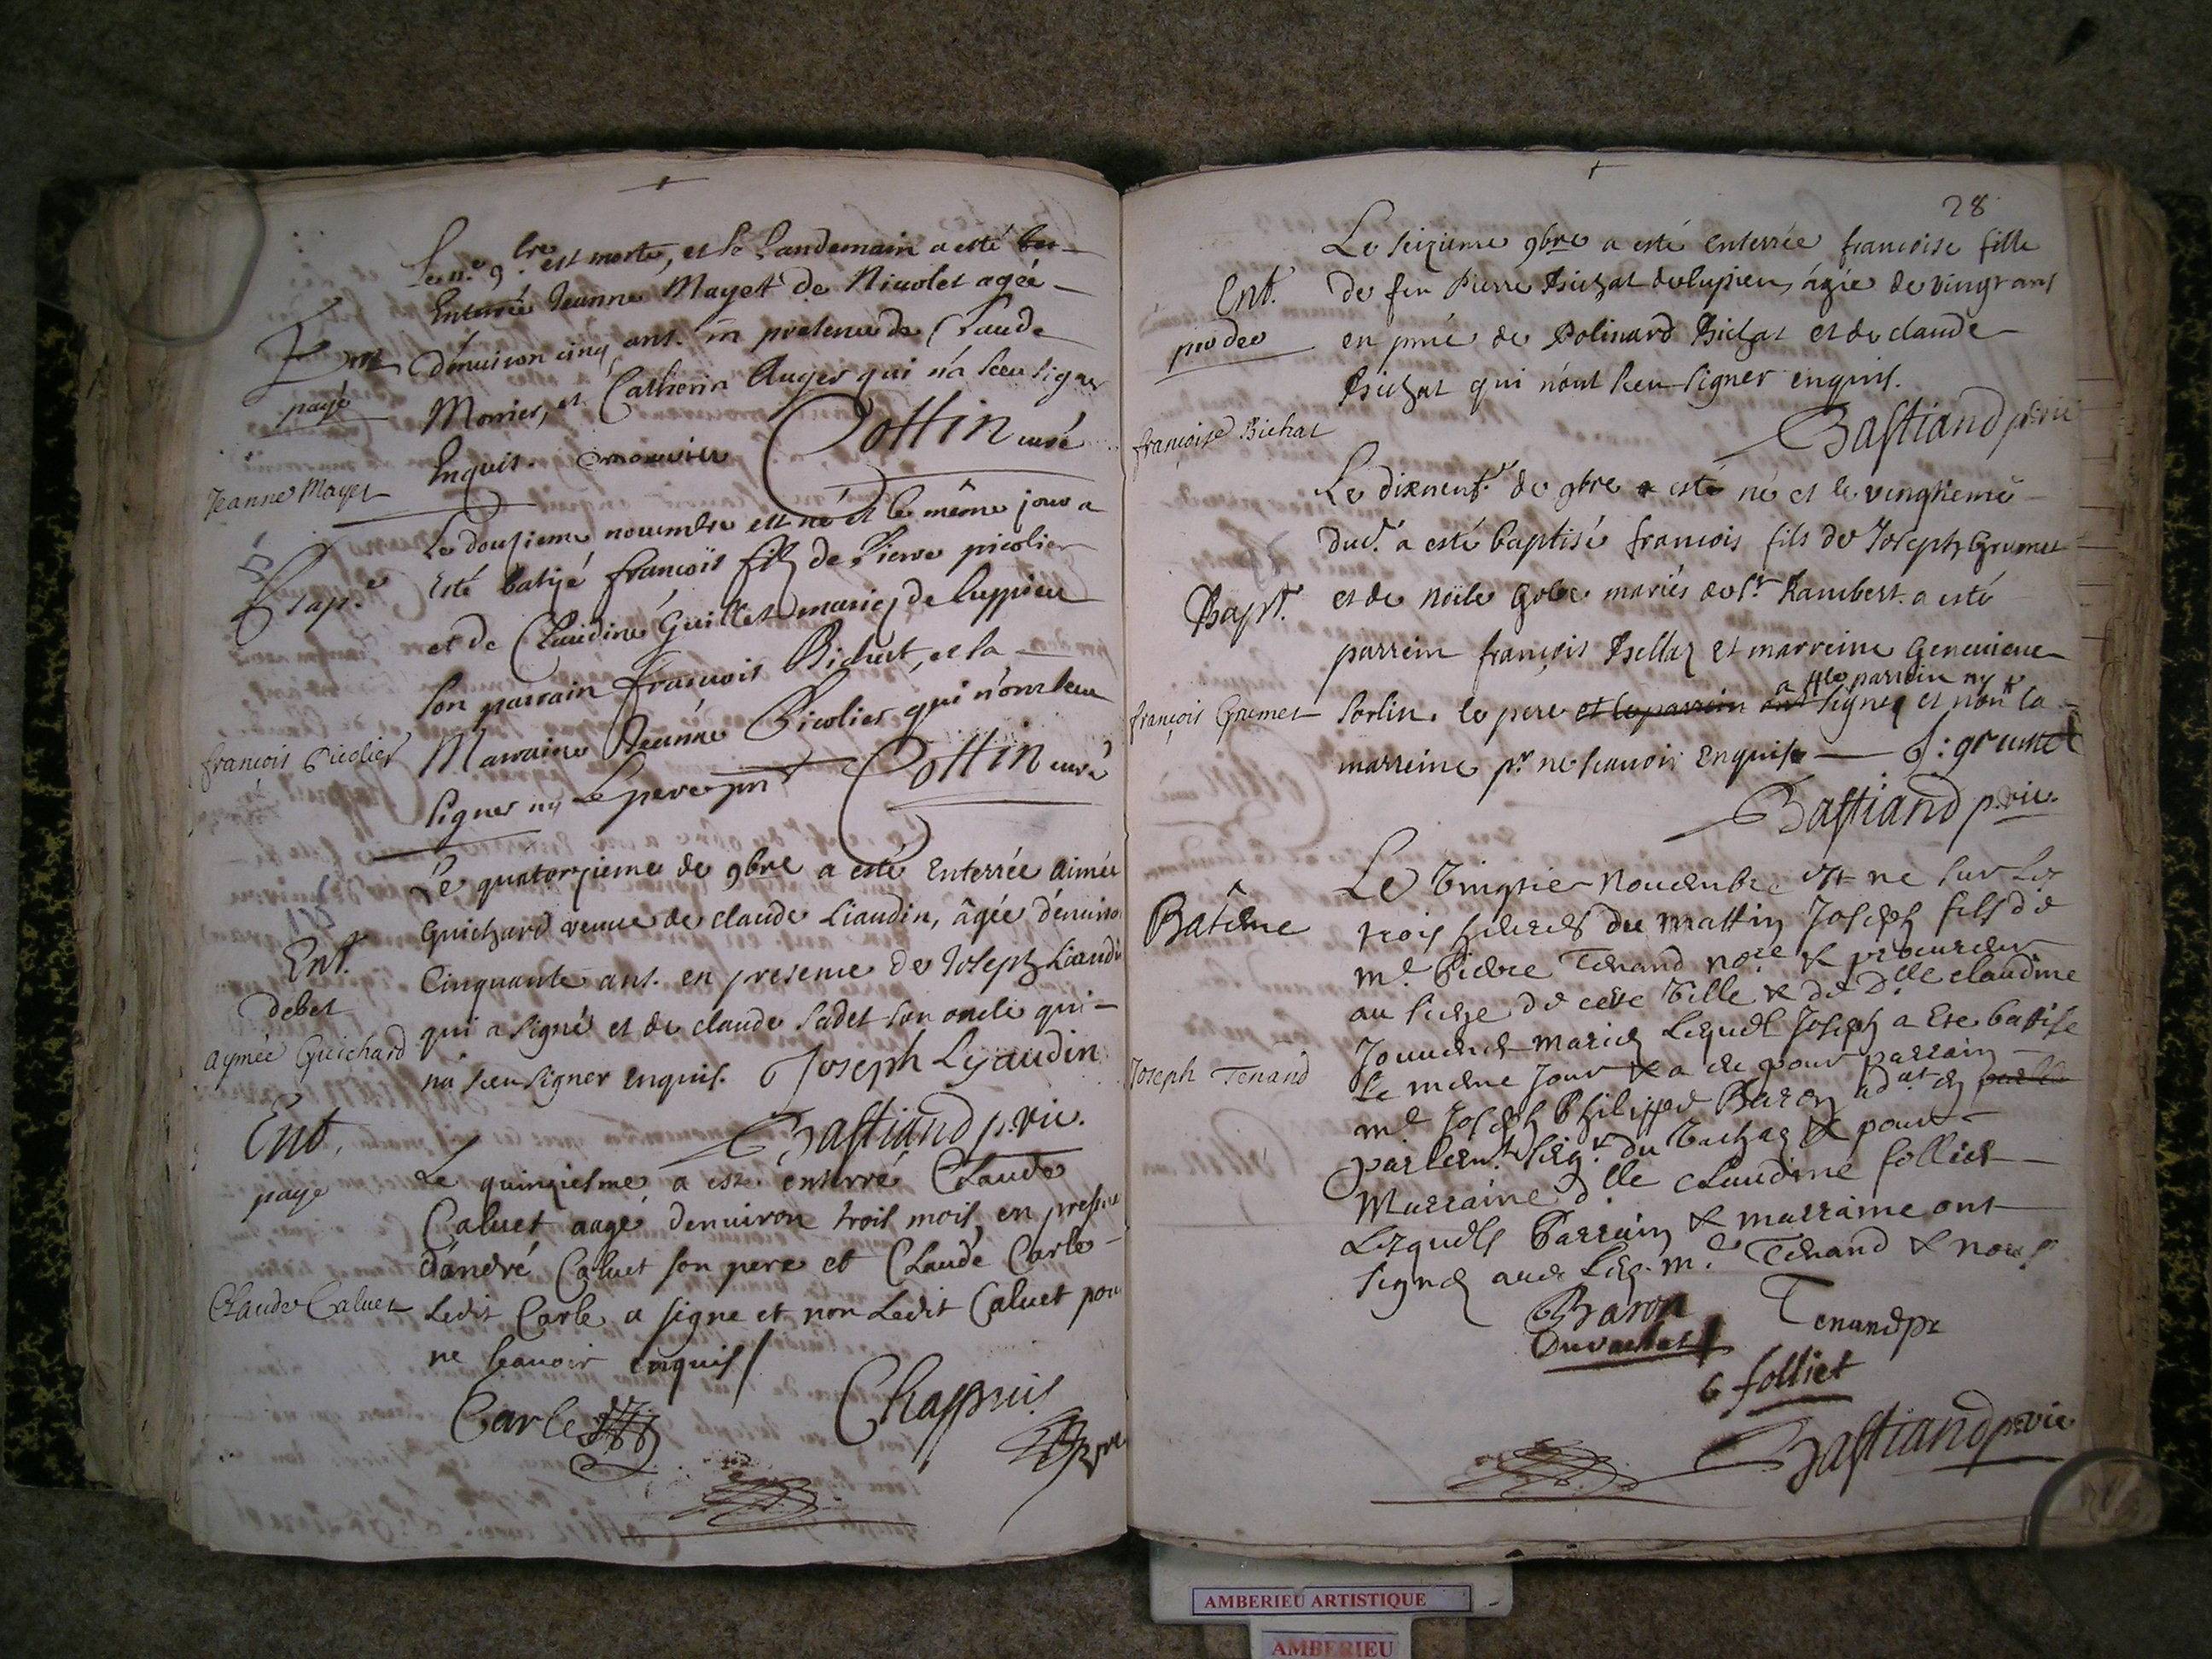 Le 11.e 9.bre est morte, et le Landemain a esté
Enterrée Jeanne Mayet de Nicolet agée
Ent
d'enuiron cinq ans. en presence de Claude
payé
Monier, et Catherin Auger qui n'a sceu signer
Enquis. monnier Cottin curé
Jeanne Mayet
Le douzieme nouembre est né et le même jour a
Bap.e
Esté batizé françois filz de Pierre picolier
et de Claudine Guillet mariez de luppieu
son parrain françois Bichat, et la
Marraine Jeanne Picolier qui n'ont sceu
françois Picolier
signer ny Le pere pnt Cottin curé
Le quatorzieme de 9bre a esté Enterrée Aimée
Guichard veuue de claude Liaudin, âgée d'enuiron
Ent.
Cinquante ans. en presence de Joseph Liaudin
debet
qui a signé et de claude Sadet son oncle qui
aymée Guichard
na sceu signer enquis. Joseph Lyaudin
Bastiand p. vic.
Ent.
Le quinziesme a esté enterré Claude
paye
Caluet aagé denuiron trois mois, en presence
d'andré Caluet son pere et Claude Carle
Claude Caluet
Ledit Carle a signe et non Ledit Caluet pour
ne scauoir enquis
Carle Chappuis
28
Le seizieme 9bre a esté enterrée francoise fille
Ent.
de feu Pierre Bichat de lupieu, âgée de vingt ans
pro deo
en pnce de Polinard Bichat et de claude
Bichat qui n'ont sceu signer enquis.
Bastiand p. vic
françoise Bichat
Le dixneuf.e de 9bre a esté né et le vingtieme
dud. a esté baptisé francois fils de Joseph Grumet
Bapt.
et de noële Gobe mariés de St Rambert. a esté
parrein françois Bellaz et marreine Geneuieue
a le parrein ny
françois Grumet
Sorlin. le pere et le parrein ont signez et non la
marreine pr ne scauoir Enquise J: grumet
Bastiand p. vic.
Le vingtie nouembre est né sur les
Batême
trois heures du mattin Joseph fils de
m.e Pierre Tenand no.re & procureur
au siege de cette ville & de D.lle claudine
Jouuenet mariez Lequel Joseph a ete batise
Joseph Tenand
Le meme jour & a ete pour parrain
m.e Joseph Philippe Baron ad.at en
parlem.t seig.r du Vachat & pour
Marraine d.lle Claudine folliet
Lesquels Parrain & marraine ont
signez auec Led. m.e Tenand & nous
Baron Tenand pr
Duvachat
C folliet
Bastiand p. vic
AMBERIEU ARTISTIQUE
AMBERIEU